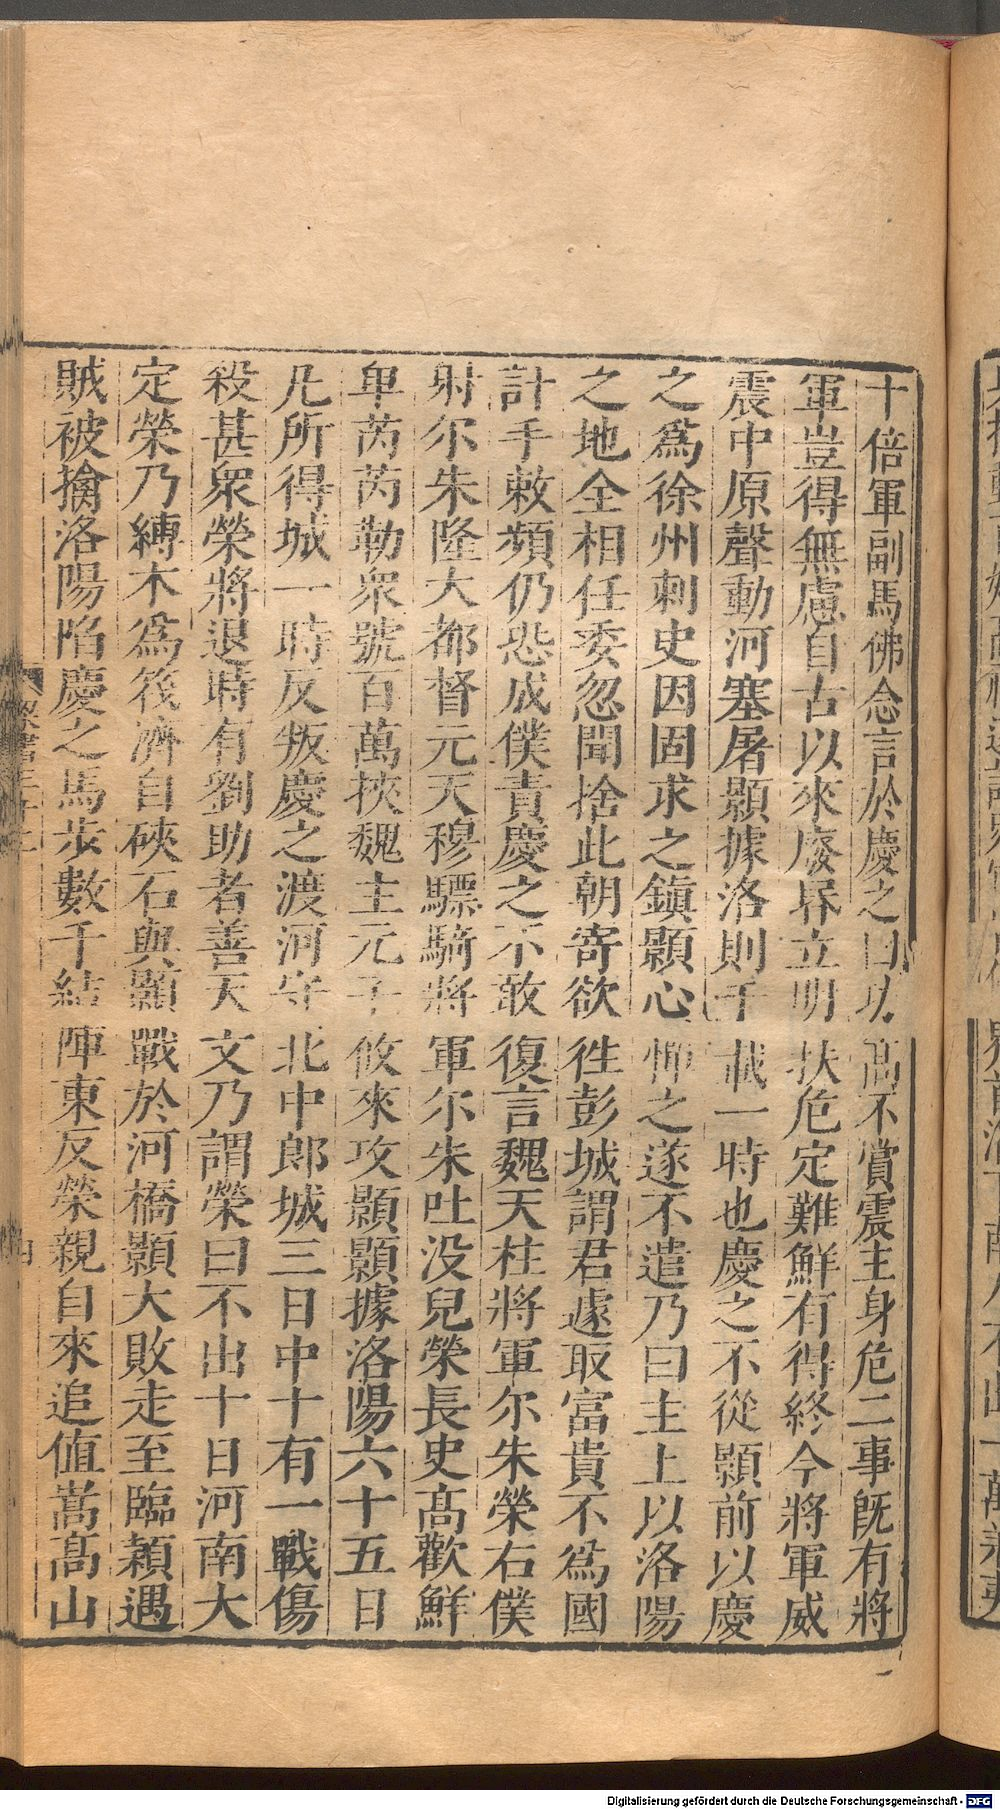 十倍軍副馬佛念言於慶之曰功高不賞震主身危二事旣有將
軍豈得無慮自古以來廢昬立明扶危定難鮮有得終今將軍威
震中原聲動河塞屠顥據洛則千載一時也慶之不從顥前以慶
之爲徐州刺史因固求之鎮顥心憚之遂不遣乃曰主上以洛陽
之地全相任委忽聞捨此朝寄欲徃彭城謂君遽取富貴不爲國
計手敕頻仍恐成僕責慶之不敢復言魏天柱將軍尔朱榮右僕
射尔朱隆大都督元天穆驃騎將軍尔朱吐没兒榮長史髙歡鮮
卑芮芮勒衆號百萬挾魏主元子攸來攻顥顥據洛陽六十五日
凡所得城一時反叛慶之渡河守北中郎城三日中十有一戰傷
殺甚衆榮將退時有劉助者善天文乃謂榮曰不出十日河南大
定榮乃縛木爲筏濟自硤石與顥戰於河橋顥大敗走至臨潁遇
賊被擒洛陽陷慶之馬步數千結陣東反榮親自來追值嵩髙山
四
Digitalisierung gefördert durch die Deutsche Forschungsgemeinschaft - DFG